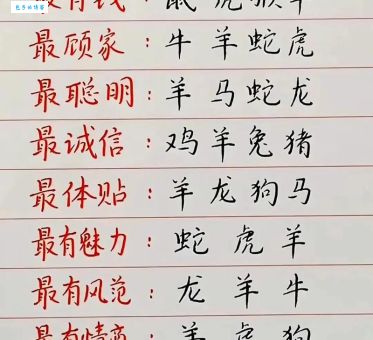 色多的博客
最有钱：鼠虎猴牛
最顾家：牛羊蛇虎
最聪明：羊马蛇龙
最诚信：鸡羊兔猪
最体贴：羊龙狗马
最有魅力：蛇虎羊
最有风范：龙羊牛
最有情商：羊虎狗